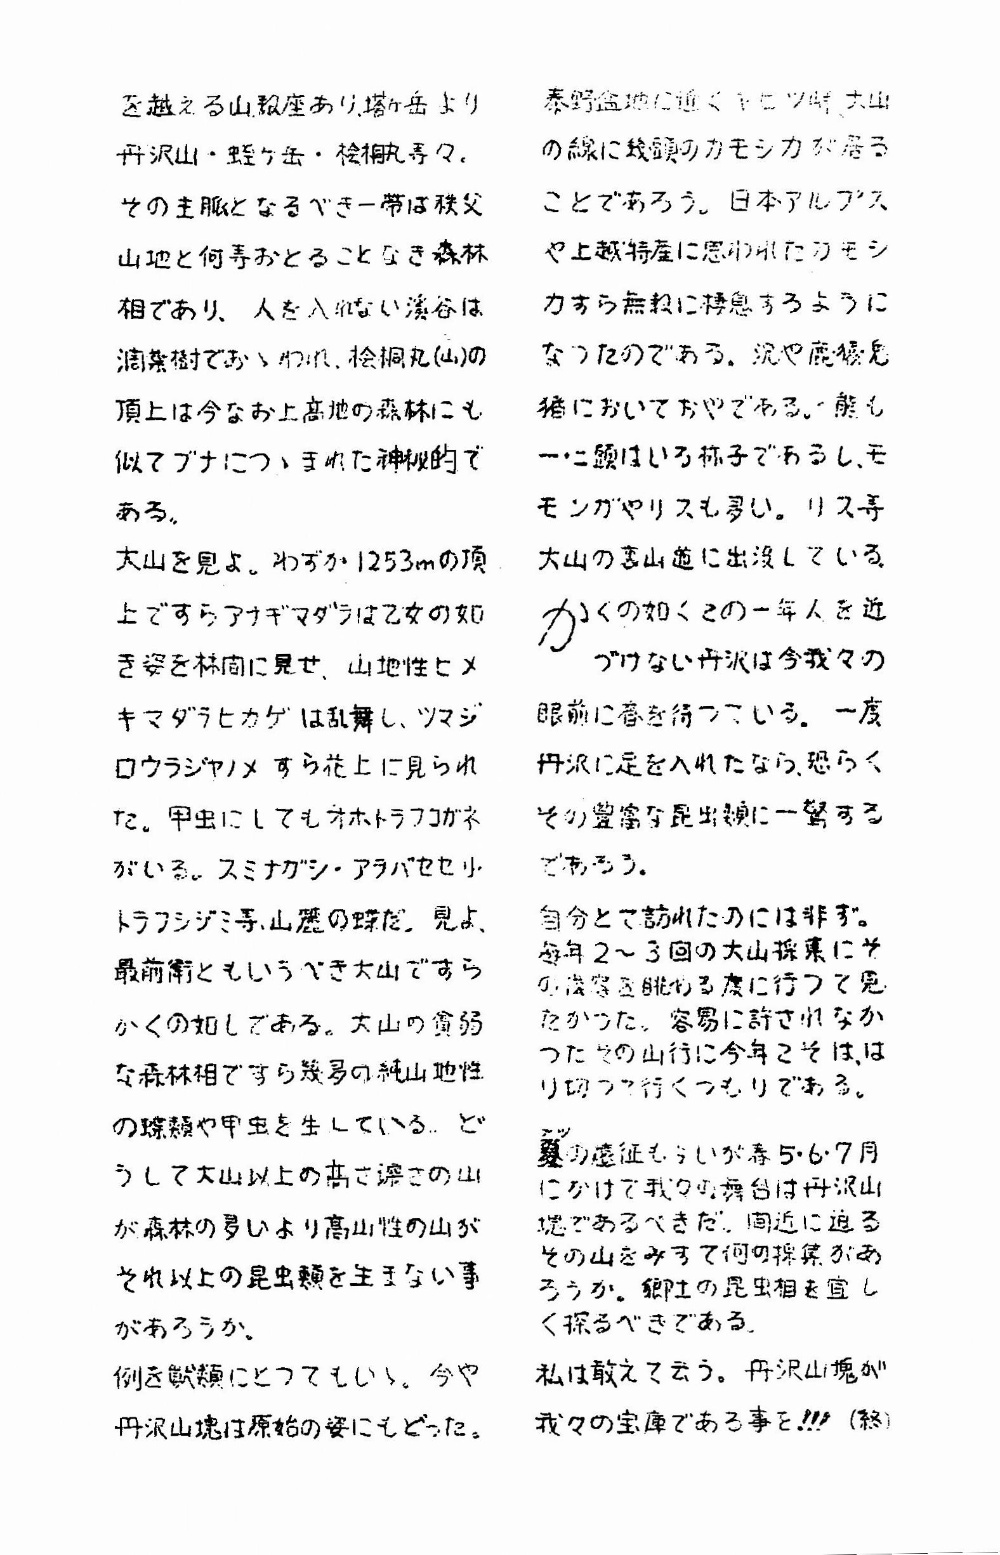 を越える山数座あり、塔ヶ岳より
丹沢山・蛭ヶ岳・桧桐丸等々。
その主脈となるべき一帯は秩父
山地と何等おとることなき森林
相であり、人を入れない渓谷は
濶葉樹でおゝわれ、桧桐丸(山)の
頂上は今なお上高地の森林にも
似てブナにつゝまれた神秘的で
ある。
大山を見よ。わずか1253mの頂
上ですらアサギマダラは乙女の如
き姿を林間に見せ、山地性ヒメ
キマダラヒカゲは乱舞し、ツマジ
ロウラジヤノメすら花上に見られ
た。甲虫にしてもオホトラフコガネ
がいる。スミナガシ・アオバセセリ・
トラフシジミ等、山麓の蝶だ。見よ、
最前衛ともいうべき大山ですら
かくの如しである。大山の貧弱
な森林相ですら幾多の純山地性
の蝶類や甲虫を生している。ど
うして大山以上の高さ深さの山
が森林の多いより高山性の山が
それ以上の昆虫類を生まない事
があろうか。
例を獣類にとつてもいゝ。今や
丹沢山塊は原始の姿にもどった。
秦野盆地に近くヤビツ峠、大山
の線に幾頭のカモシカが居る
ことであろう。日本アルプス
や上越特産に思われたカモシ
カすら無数に棲息するように
なつたのである。況や鹿猿兎
猪においておやである。熊も
一・二頭はいる様子であるし、モ
モンガやリスも多い。リス等
大山の表山道に出没している。
かくの如くこの一年人を近
づけない丹沢は今我々の
眼前に春を待つている。一度
丹沢に足を入れたなら、恐らく
その豊富な昆虫類に一驚する
であろう。
自分とて訪れたのには非ず。
毎年2〜3回の大山採集にそ
の後容を眺める度に行つて見
たかつた。容易に許されなか
つたその山行に今年こそは、は
り切つて行くつもりである。
夏の遠征もよいが春5・6・7月
にかけて我々の舞台は丹沢山
塊であるべきだ。間近に迫る
その山をみすて何の採集があ
ろうか。郷土の昆虫相を宜し
く探るべきである。
私は敢えて云う。丹沢山塊が
我々の宝庫である事を!!!(終)